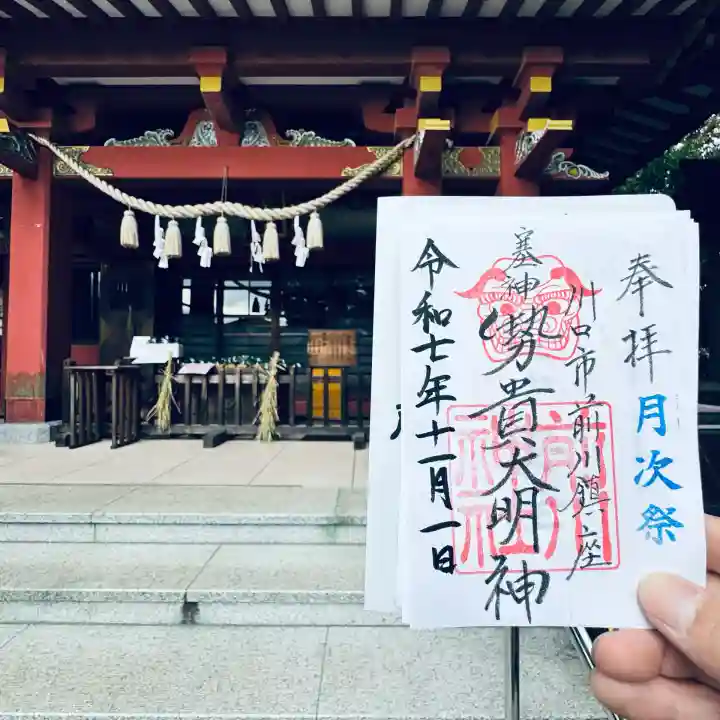 奉拝
月次祭
川口市前川鎮座
塞神
勢貴大明神
令和七年十一月一日
前川神社